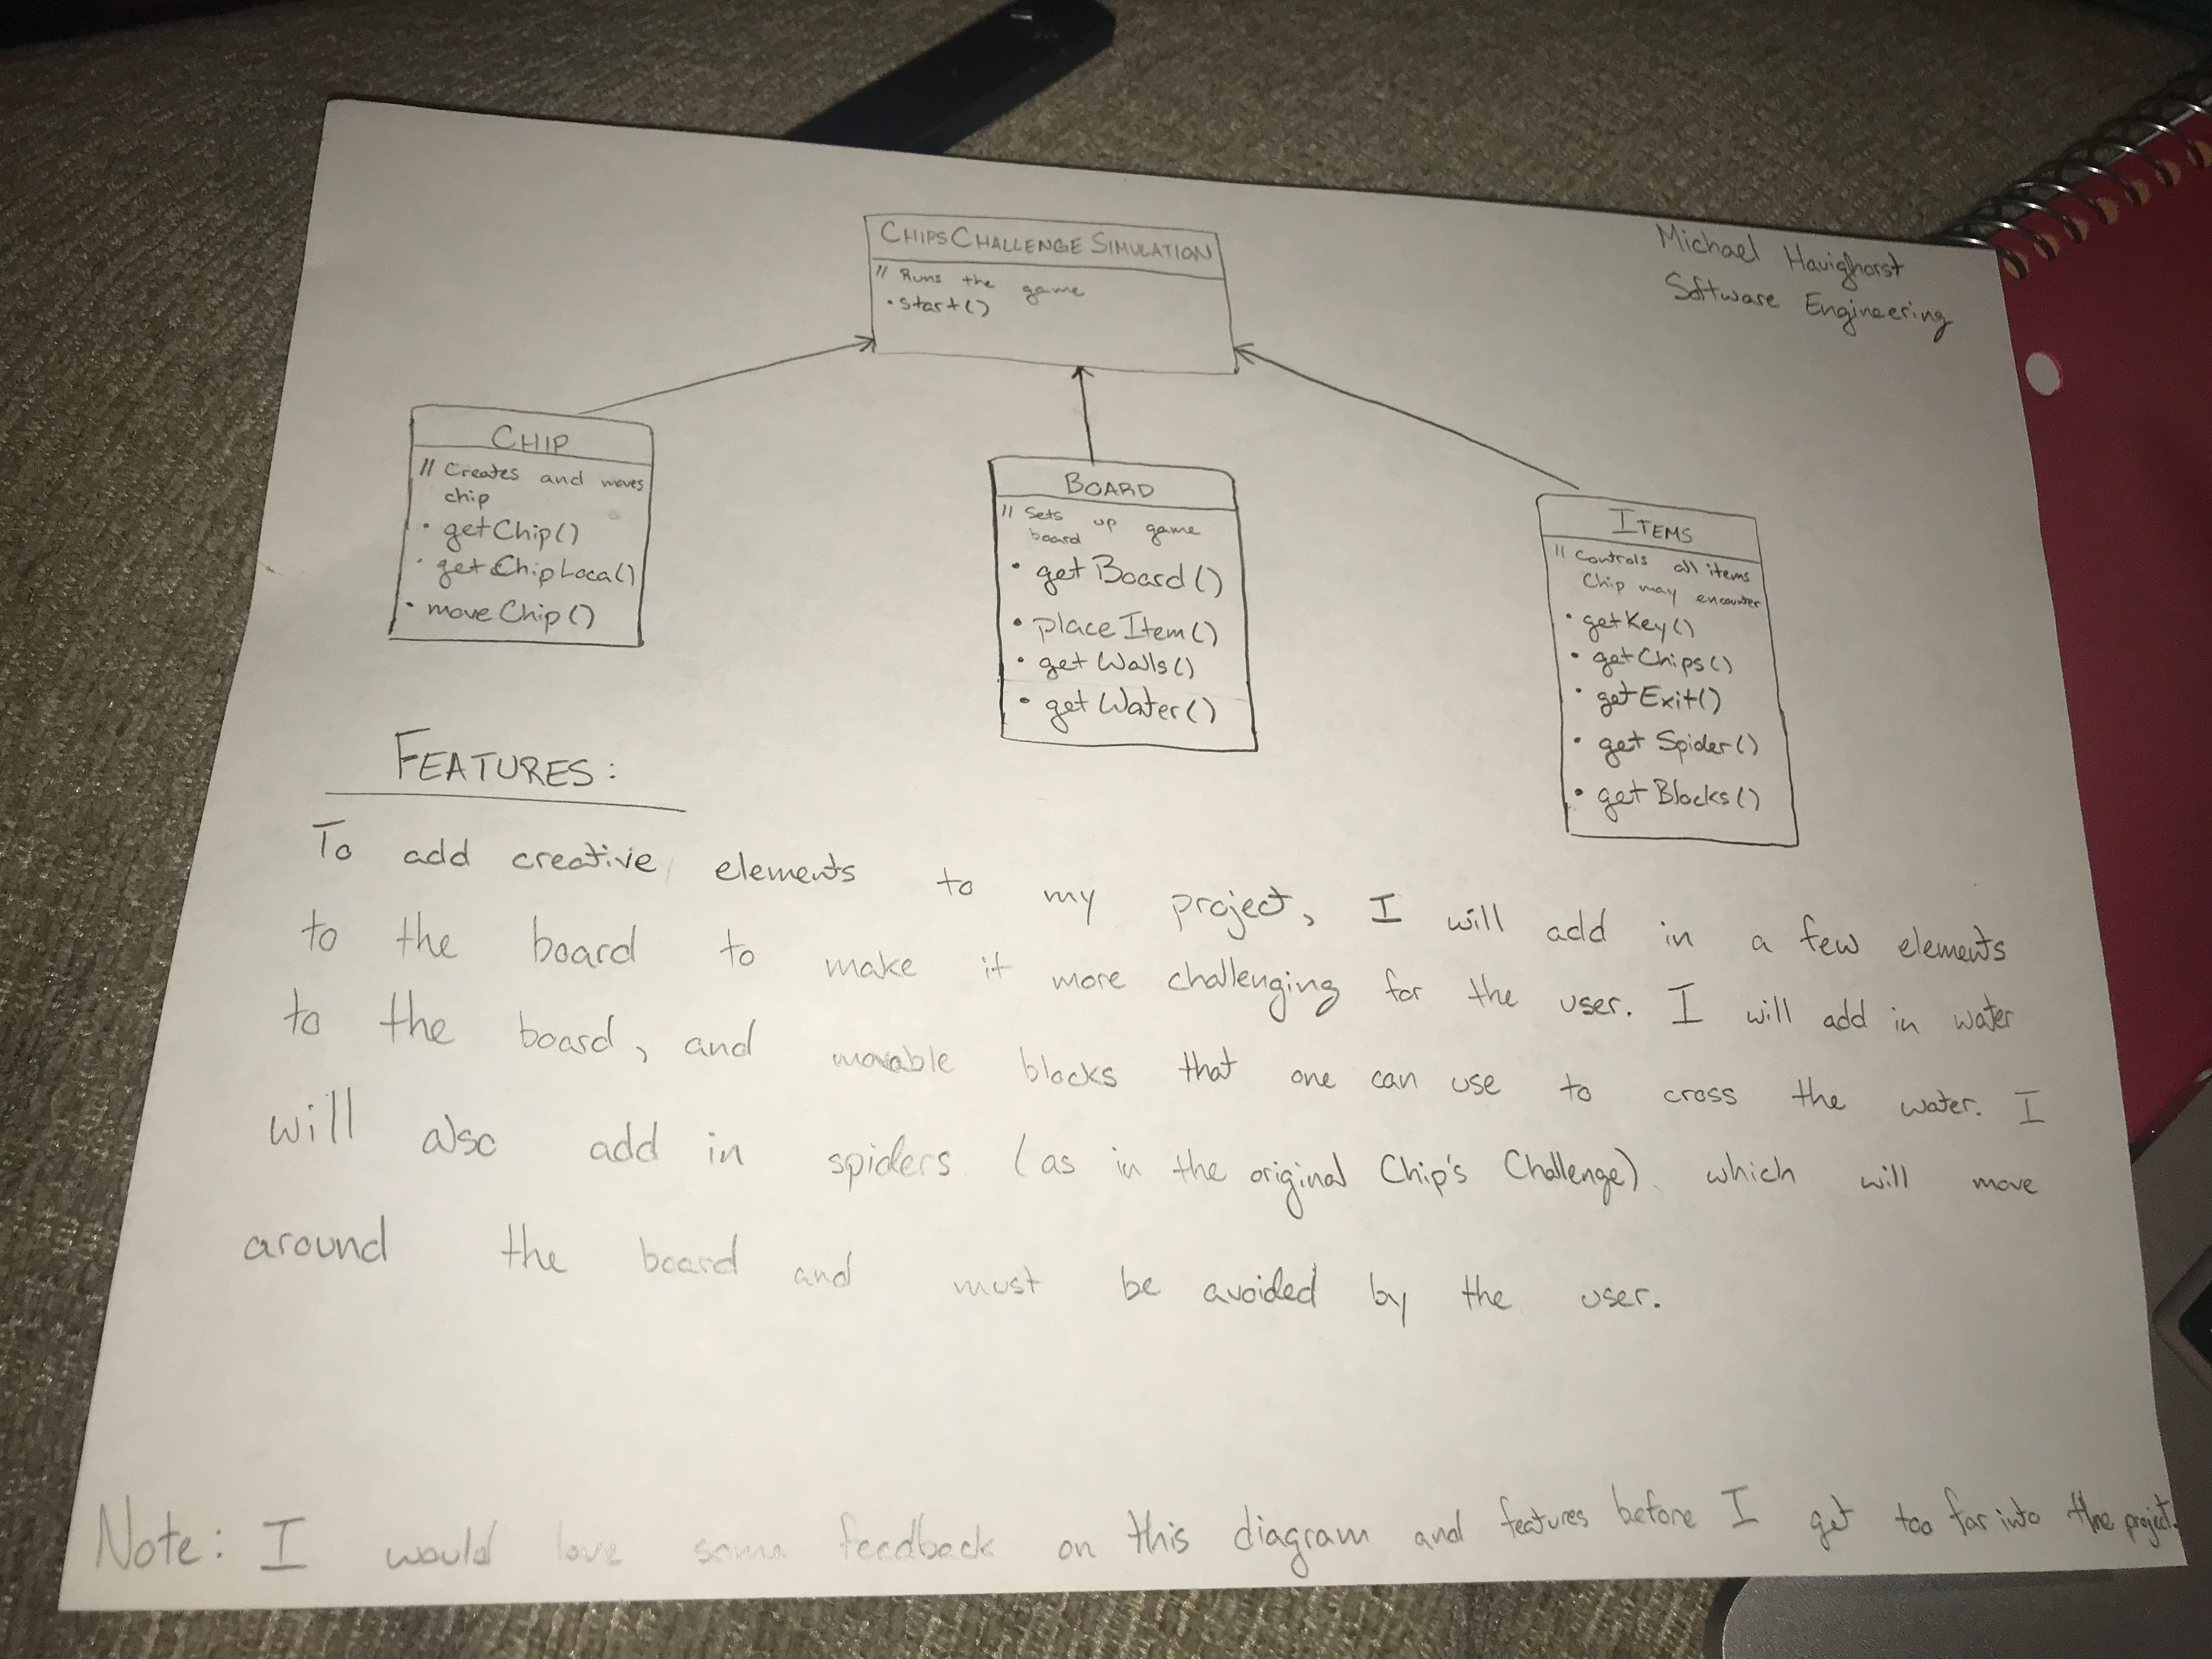 Michael Havighorst
Software Engineering
CHIPSCHALLENGE SIMULATION
// Runs the game
• start()
CHIP
// Creates and moves
chip
• getChip()
• getChipLoca()
• moveChip()
BOARD
// Sets up game
board
• getBoard()
• placeItem()
• getWalls()
• getWater()
ITEMS
// Controls all items
Chip may encounter
• getKey()
• getChips()
• getExit()
• getSpider()
• getBlocks()
FEATURES:
To add creative elements to my project, I will add in a few elements
to the board to make it more challenging for the user. I will add in water
to the board, and movable blocks that one can use to cross the water. I
will also add in spiders (as in the original Chip's Challenge) which will move
around the board and must be avoided by the user.
Note: I would love some feedback on this diagram and features before I get too far into the project.